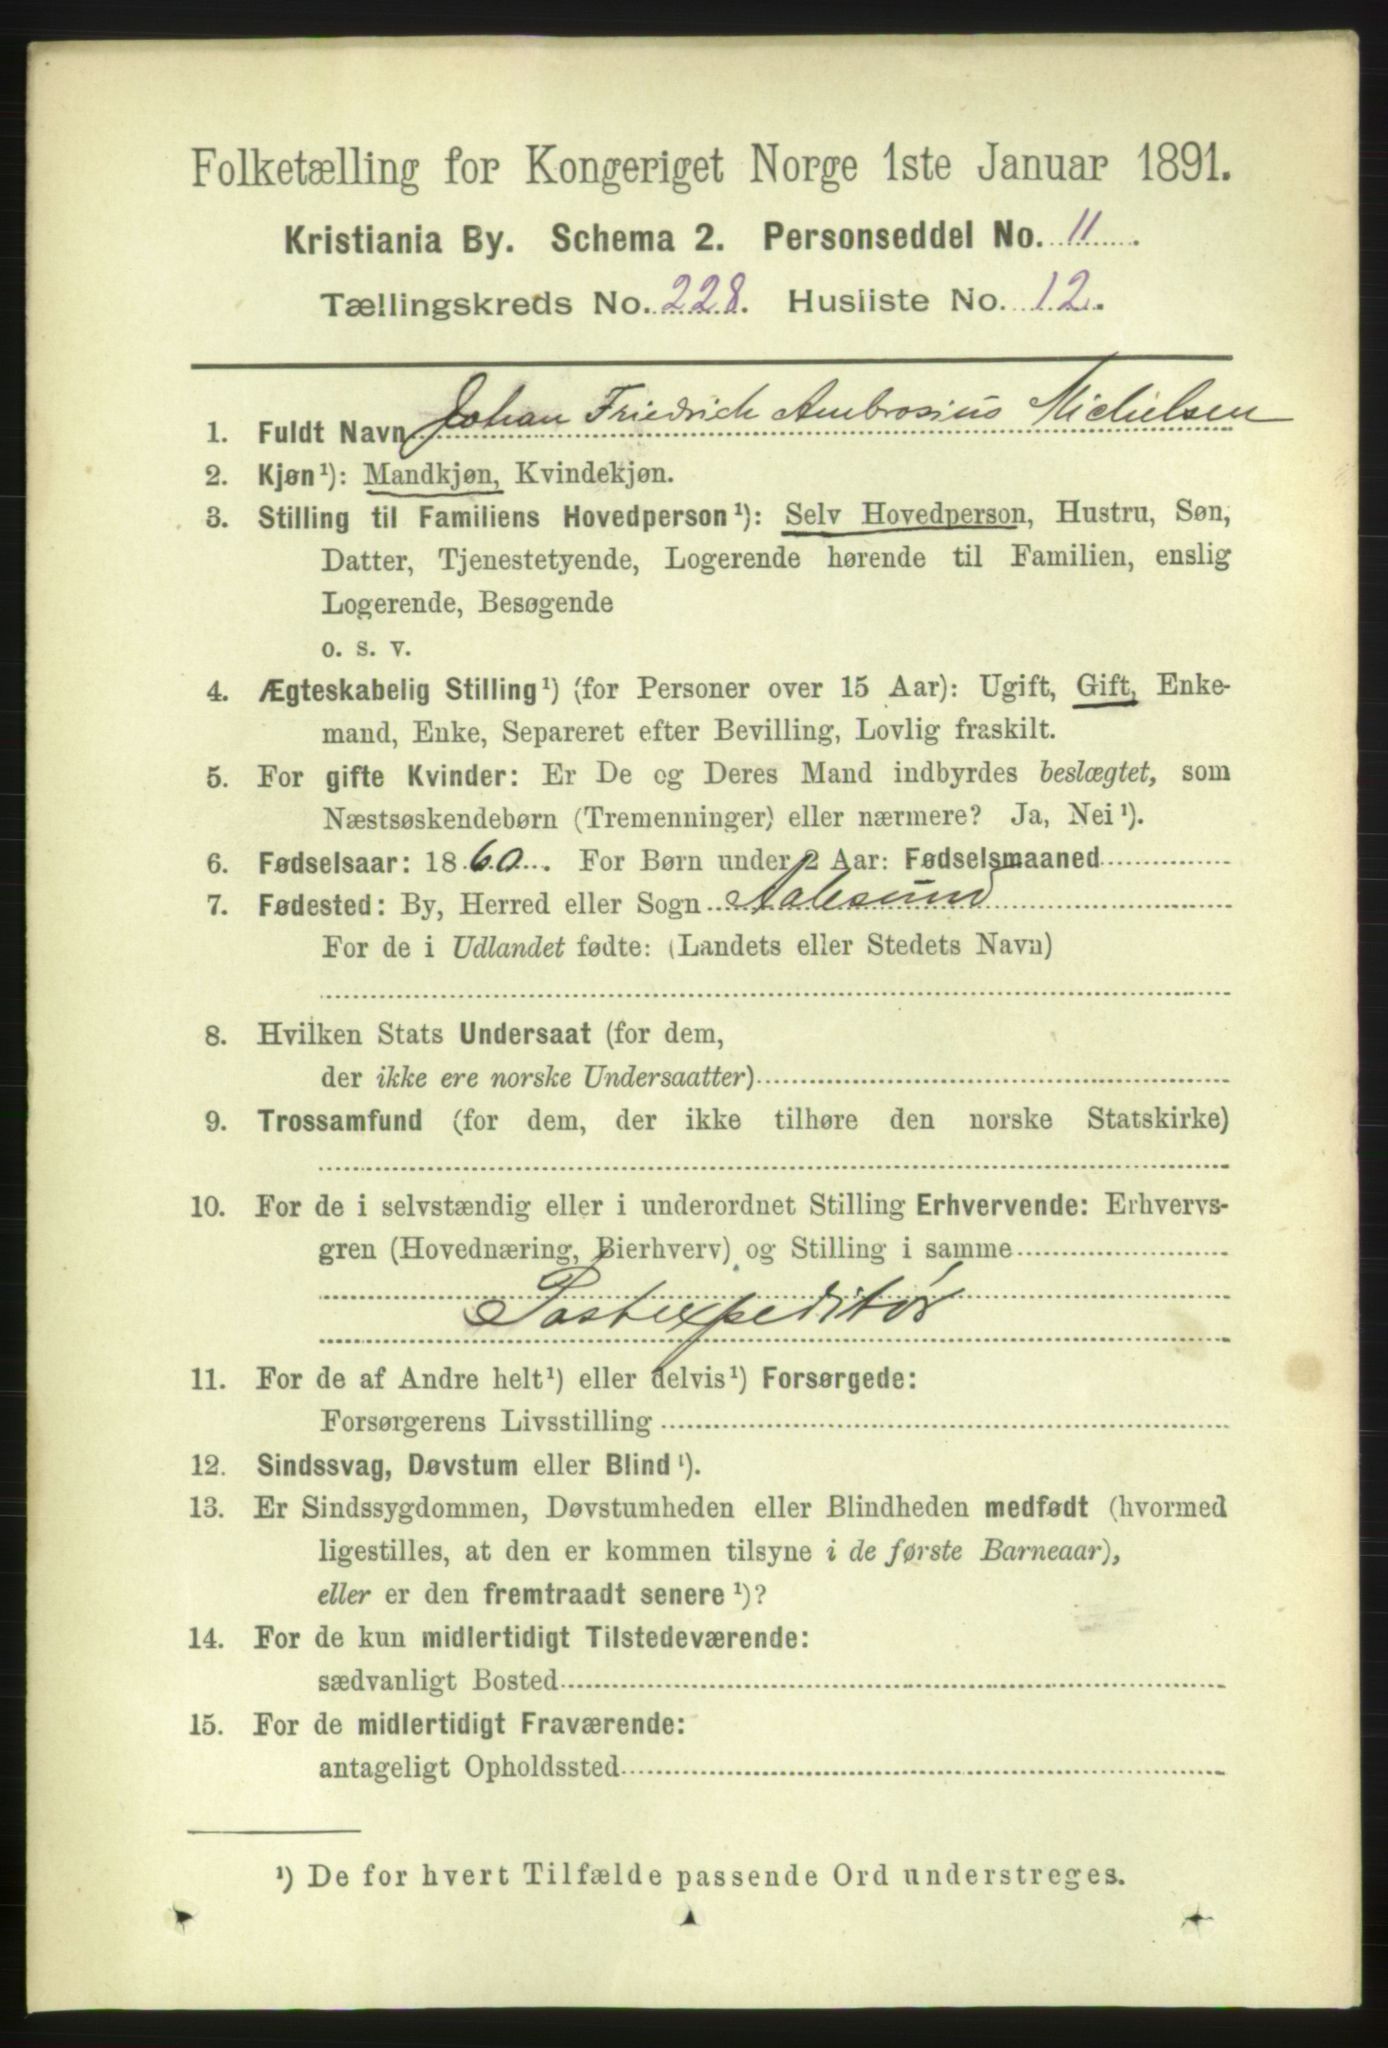 Folketælling for Kongeriget Norge 1ste Januar 1891.
Kristiania By. Schema 2. Personseddel No. 11.
Tællingskreds No. 228. Husliste No. 12.
1. Fuldt Navn Johan Friedrich Ambrosius Michelsen
2. Kjøn¹): Mandkjøn, Kvindekjøn.
3. Stilling til Familiens Hovedperson¹): Selv Hovedperson, Hustru, Søn,
Datter, Tjenestetyende, Logerende hørende til Familien, enslig
Logerende, Besøgende
o. s. v.
4. Ægteskabelig Stilling¹) (for Personer over 15 Aar): Ugift, Gift, Enke-
mand, Enke, Separeret efter Bevilling, Lovlig fraskilt.
5. For gifte Kvinder: Er De og Deres Mand indbyrdes beslægtet, som
Næstsøskendebørn (Tremenninger) eller nærmere? Ja, Nei¹).
6. Fødselsaar: 1860. For Børn under 2 Aar: Fødselsmaaned
7. Fødested: By, Herred eller Sogn Aalesund
For de i Udlandet fødte: (Landets eller Stedets Navn)
8. Hvilken Stats Undersaat (for dem,
der ikke ere norske Undersaatter)
9. Trossamfund (for dem, der ikke tilhøre den norske Statskirke)
10. For de i selvstændig eller i underordnet Stilling Erhvervende: Erhvervs-
gren (Hovednæring, Bierhverv) og Stilling i samme
Postexpeditør
11. For de af Andre helt¹) eller delvis¹) Forsørgede:
Forsørgerens Livsstilling
12. Sindssvag, Døvstum eller Blind¹).
13. Er Sindssygdommen, Døvstumheden eller Blindheden medfødt (hvormed
ligestilles, at den er kommen tilsyne i de første Barneaar),
eller er den fremtraadt senere¹)?
14. For de kun midlertidigt Tilstedeværende:
sædvanligt Bosted
15. For de midlertidigt Fraværende:
antageligt Opholdssted
¹) De for hvert Tilfælde passende Ord understreges.